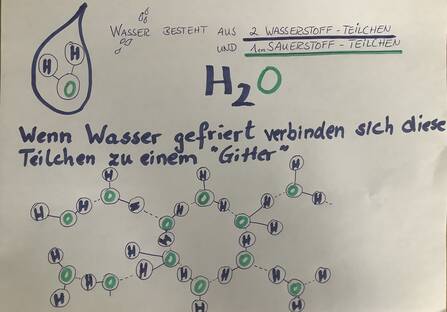 WASSER BESTEHT AUS 2 WASSERSTOFF-TEILCHEN
UND 1em SAUERSTOFF-TEILCHEN
H H O
H2O
Wenn Wasser gefriert verbinden sich diese
Teilchen zu einem "Gitter"
H H H
O H O O
H O H H H O H
O O H
H H H
H O H O
O H O O O H O H
H H H H